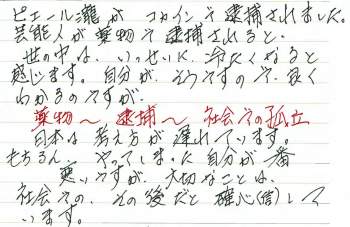 ピエール瀧が コカインで逮捕されました。
芸能人が薬物で逮捕されると、
世の中は、いっせいに、冷たくなると
感じます。自分が、そうですので、良く
わかるのですが、
薬物〜逮捕〜社会での孤立
日本は考え方が遅れています。
もちろん、やってしまった自分が一番
悪いですが、大切なことは、
社会での、その後だと確心(信)して
います。